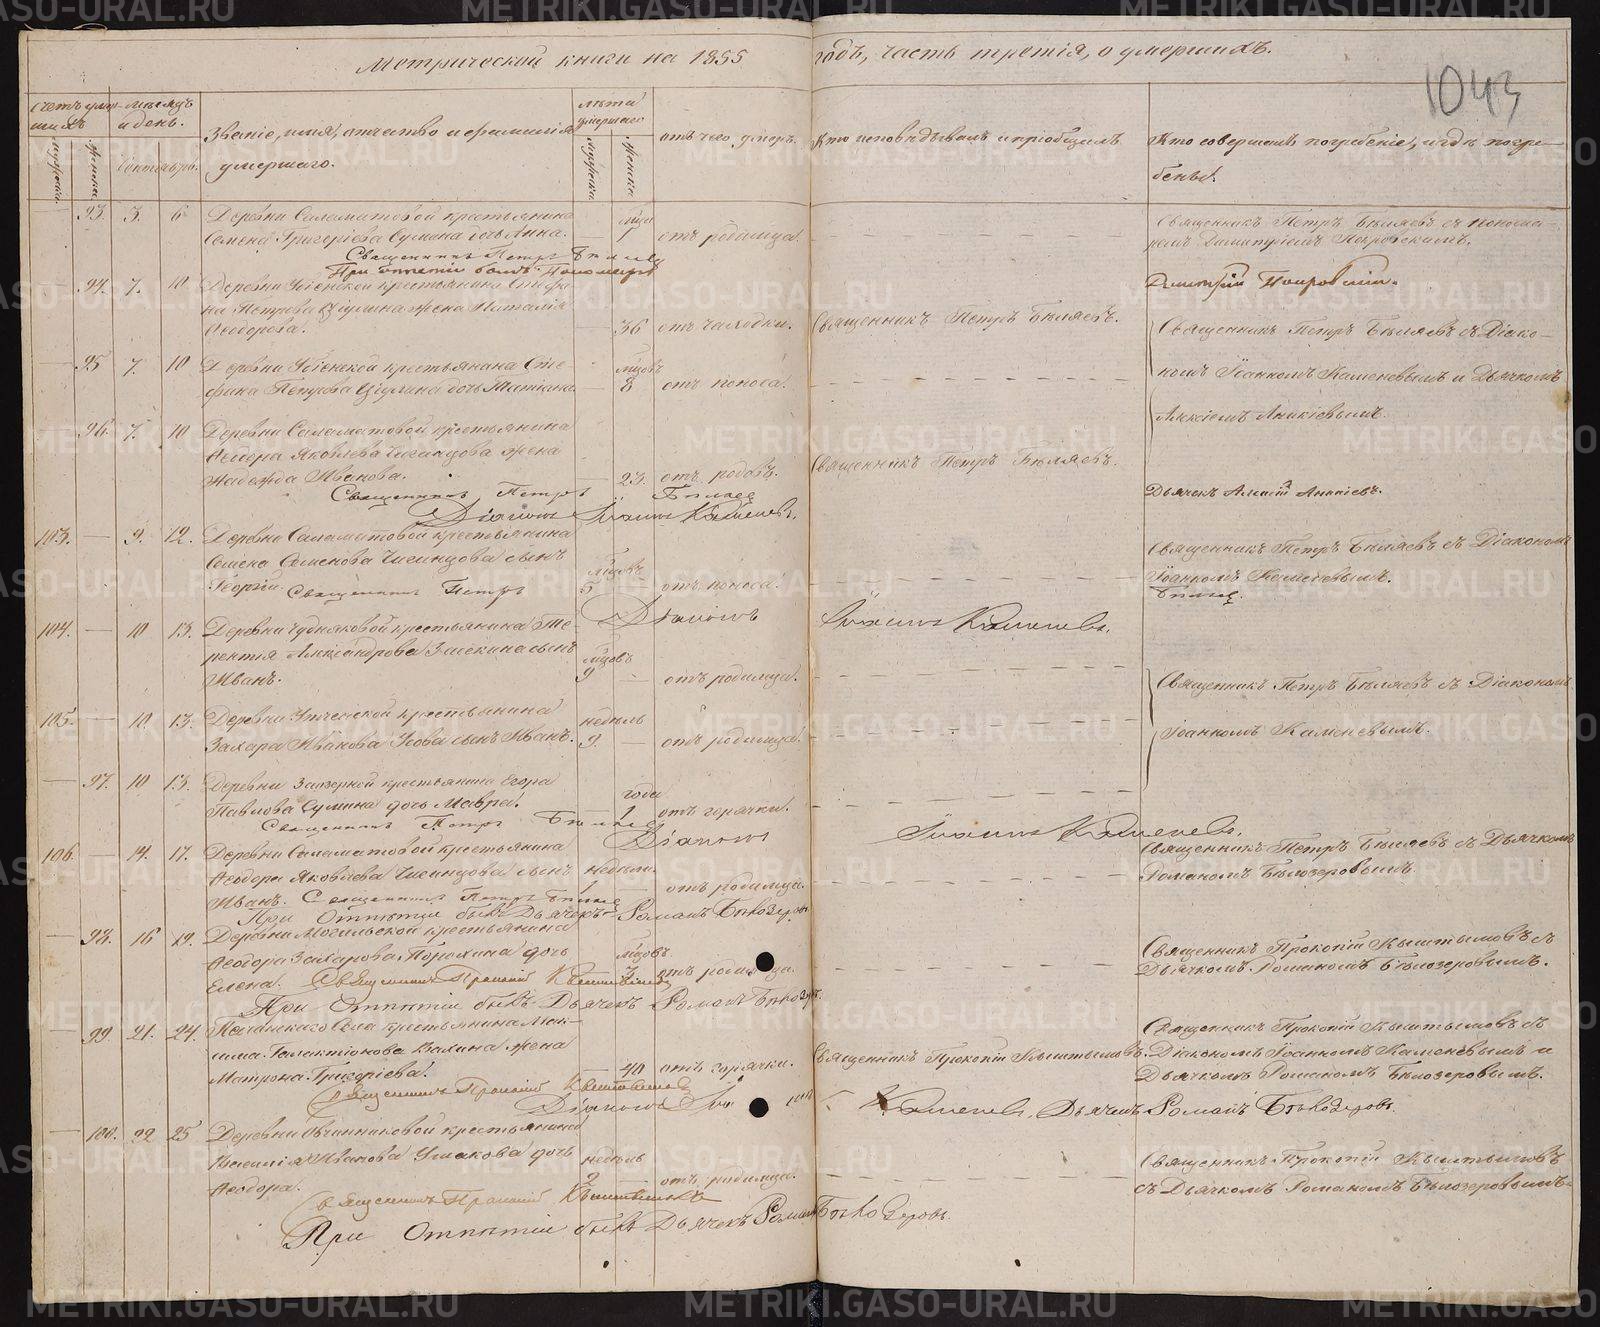 Метрической книги на 1855 годъ, часть третія, о умершихъ.
1043
Счетъ умершихъ
Мѣсяцъ и день.
Звание, имя, отчество и фамилія
умершаго.
лѣта умершаго
отъ чего умеръ.
Кто исповѣдывалъ и пріобщалъ
Кто совершалъ погребеніе, и гдѣ погре-
бены.
93. 3. 6 Деревни Саламатовой крестьянина
Семена Григоріева Сумина дочь Анна. 1 отъ родимца.
Священникъ Петръ Бѣляевъ съ понома-
ремъ Димитріемъ Покровскимъ.
Священникъ Петръ Бѣляевъ
При отпѣтіи былъ Пономарь Димитрій Покровскій.
94. 7. 10 Деревни крестьянина
Петрова жена Наталія
Ѳеодорова. 36 отъ чахотки. Священникъ Петръ Бѣляевъ.
Священникъ Петръ Бѣляевъ съ Діако-
95 7. 10 Деревни крестьянина Сте-
Петрова дочь Татіана 8 отъ поноса.
номъ Іоанномъ Каменевымъ и Дьячкомъ
Алексіемъ Аникіевымъ.
96. 7. 10 Деревни Саламатовой крестьянина
Ѳеодора Яковлева жена
Надежда Иванова. 23. отъ родовъ. Священникъ Петръ Бѣляевъ.
Священникъ Петръ Бѣляевъ
Дьячекъ Алексій Аникіевъ.
Діаконъ Іоаннъ Каменевъ.
103. 9. 12. Деревни Саламатовой крестьянина
Семена Семенова сынъ
Георгій. 5 отъ поноса.
Священникъ Петръ Бѣляевъ съ Діакономъ
Іоанномъ Каменевымъ.
Священникъ Петръ Бѣляевъ
Діаконъ Іоаннъ Каменевъ.
104. 10 13. Деревни крестьянина Те-
рентія Александрова сынъ
Иванъ. 9 отъ родимца.
Священникъ Петръ Бѣляевъ съ Діакономъ
105. 10 13. Деревни крестьянина недѣль
Захара Иванова Усова сынъ Иванъ. 9. отъ родимца.
Іоанномъ Каменевымъ.
97. 10 13. Деревни Заозерной крестьянина Егора года
Павлова Сумина дочь Мавра. 1 отъ горячки.
Священникъ Петръ Бѣляевъ
Діаконъ Іоаннъ Каменевъ.
106. 14. 17. Деревни Саламатовой крестьянина
Ѳеодора Яковлева сынъ недѣли
Иванъ. 1 отъ родимца.
Священникъ Петръ Бѣляевъ съ Дьячкомъ
Романомъ Бѣлозеровымъ.
Священникъ Петръ Бѣляевъ
При Отпѣтіи былъ Дьячекъ Романъ Бѣлозеровъ
98. 16 19. Деревни Могильской крестьянина
Ѳеодора Захарова дочь
Елена. 3 отъ родимца.
Священникъ Прокопій Кыштымовъ съ
Дьячкомъ Романомъ Бѣлозеровымъ.
Священникъ Прокопій Кыштымовъ
При Отпѣтіи былъ Дьячекъ Романъ Бѣлозеровъ.
99. 21. 24. Села крестьянина Мак-
сима Галактіонова жена
Матрона Григоріева. 40 отъ горячки. Священникъ Прокопій Кыштымовъ.
Священникъ Прокопій Кыштымовъ съ
Діакономъ Іоанномъ Каменевымъ и
Дьячкомъ Романомъ Бѣлозеровымъ.
Священникъ Прокопій Кыштымовъ
Діаконъ Каменевъ, Дьячекъ Романъ Бѣлозеровъ.
100. 22 25 Деревни Овчинниковой крестьянина
Василія Иванова дочь недѣль
Ѳеодора. 2 отъ родимца.
Священникъ Прокопій Кыштымовъ
съ Дьячкомъ Романомъ Бѣлозеровымъ.
Священникъ Прокопій Кыштымовъ
При Отпѣтіи былъ Дьячекъ Романъ Бѣлозеровъ.
METRIKI.GASO-URAL.RU